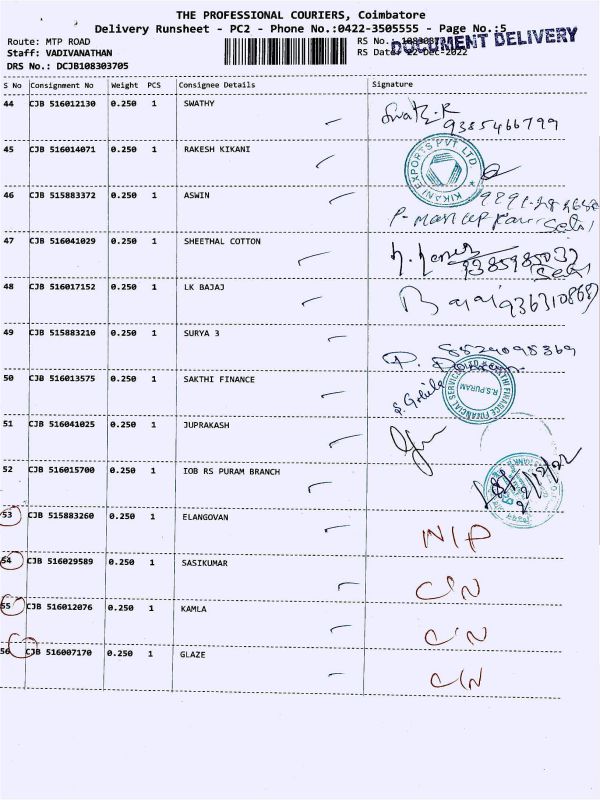 THE PROFESSIONAL COURIERS, Coimbatore
Delivery Runsheet - PC2 - Phone No.:0422-3505555 - Page No.:5
Route: MTP ROAD
RS No.:
DOCUMENT DELIVERY
Staff: VADIVANATHAN
RS Date: 22-Dec-2022
DRS No.: DCJB108303705
S No Consignment No Weight PCS Consignee Details Signature
44 CJB 516012130 0.250 1 SWATHY
9385466799
45 CJB 516014071 0.250 1 RAKESH KIKANI
KIKANI EXPORTS PVT LTD
46 CJB 515883372 0.250 1 ASWIN
47 CJB 516041029 0.250 1 SHEETHAL COTTON
9385985032
48 CJB 516017152 0.250 1 LK BAJAJ
Bajaj 9363108687
49 CJB 515883210 0.250 1 SURYA 3
50 CJB 516013575 0.250 1 SAKTHI FINANCE
SAKTHI FINANCE FINANCIAL SERVICES LTD
R.S.PURAM
51 CJB 516041025 0.250 1 JUPRAKASH
52 CJB 516015700 0.250 1 IOB RS PURAM BRANCH
22/12/22
53 CJB 515883260 0.250 1 ELANGOVAN
N/P
54 CJB 516029589 0.250 1 SASIKUMAR
C/N
55 CJB 516012076 0.250 1 KAMLA
C/N
56 CJB 516007170 0.250 1 GLAZE
C/N